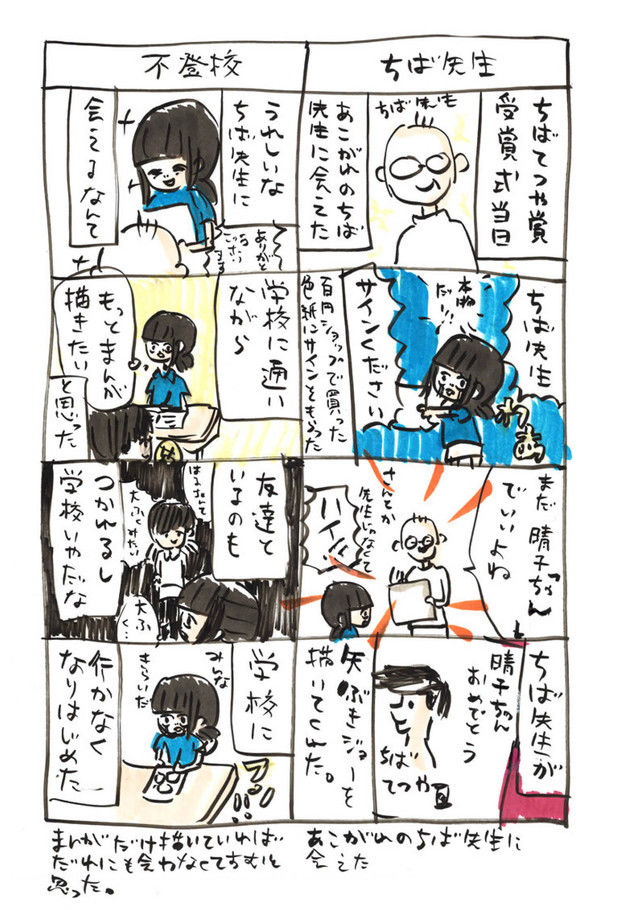 ちば先生
ちばてつや賞
受賞式当日
あこがれのちば
先生に会えた
ちば先生
サインください
本物
だ!!
百円ショップで買った
色紙にサインをもらった
まだ 晴子ちゃん
でいいよね
さんとか
先生じゃなくて
ハイ!!
ちば先生が
晴子ちゃん
おめでとう
ちば
てつや
矢ぶきジョーを
描いてくれた。
あこがれのちば先生に
会えた
不登校
うれしいな
ちば先生に
会えるなんて
ありがと
学校に通い
ながら
もっとまんが
描きたい
と思った
友達と
いるのも
つかれるし
学校いやだな
学校に
行かなく
なりはじめた
みんな
きらいだ
まんがだけ描いていれば
だれにも会わなくてすむと
思った。